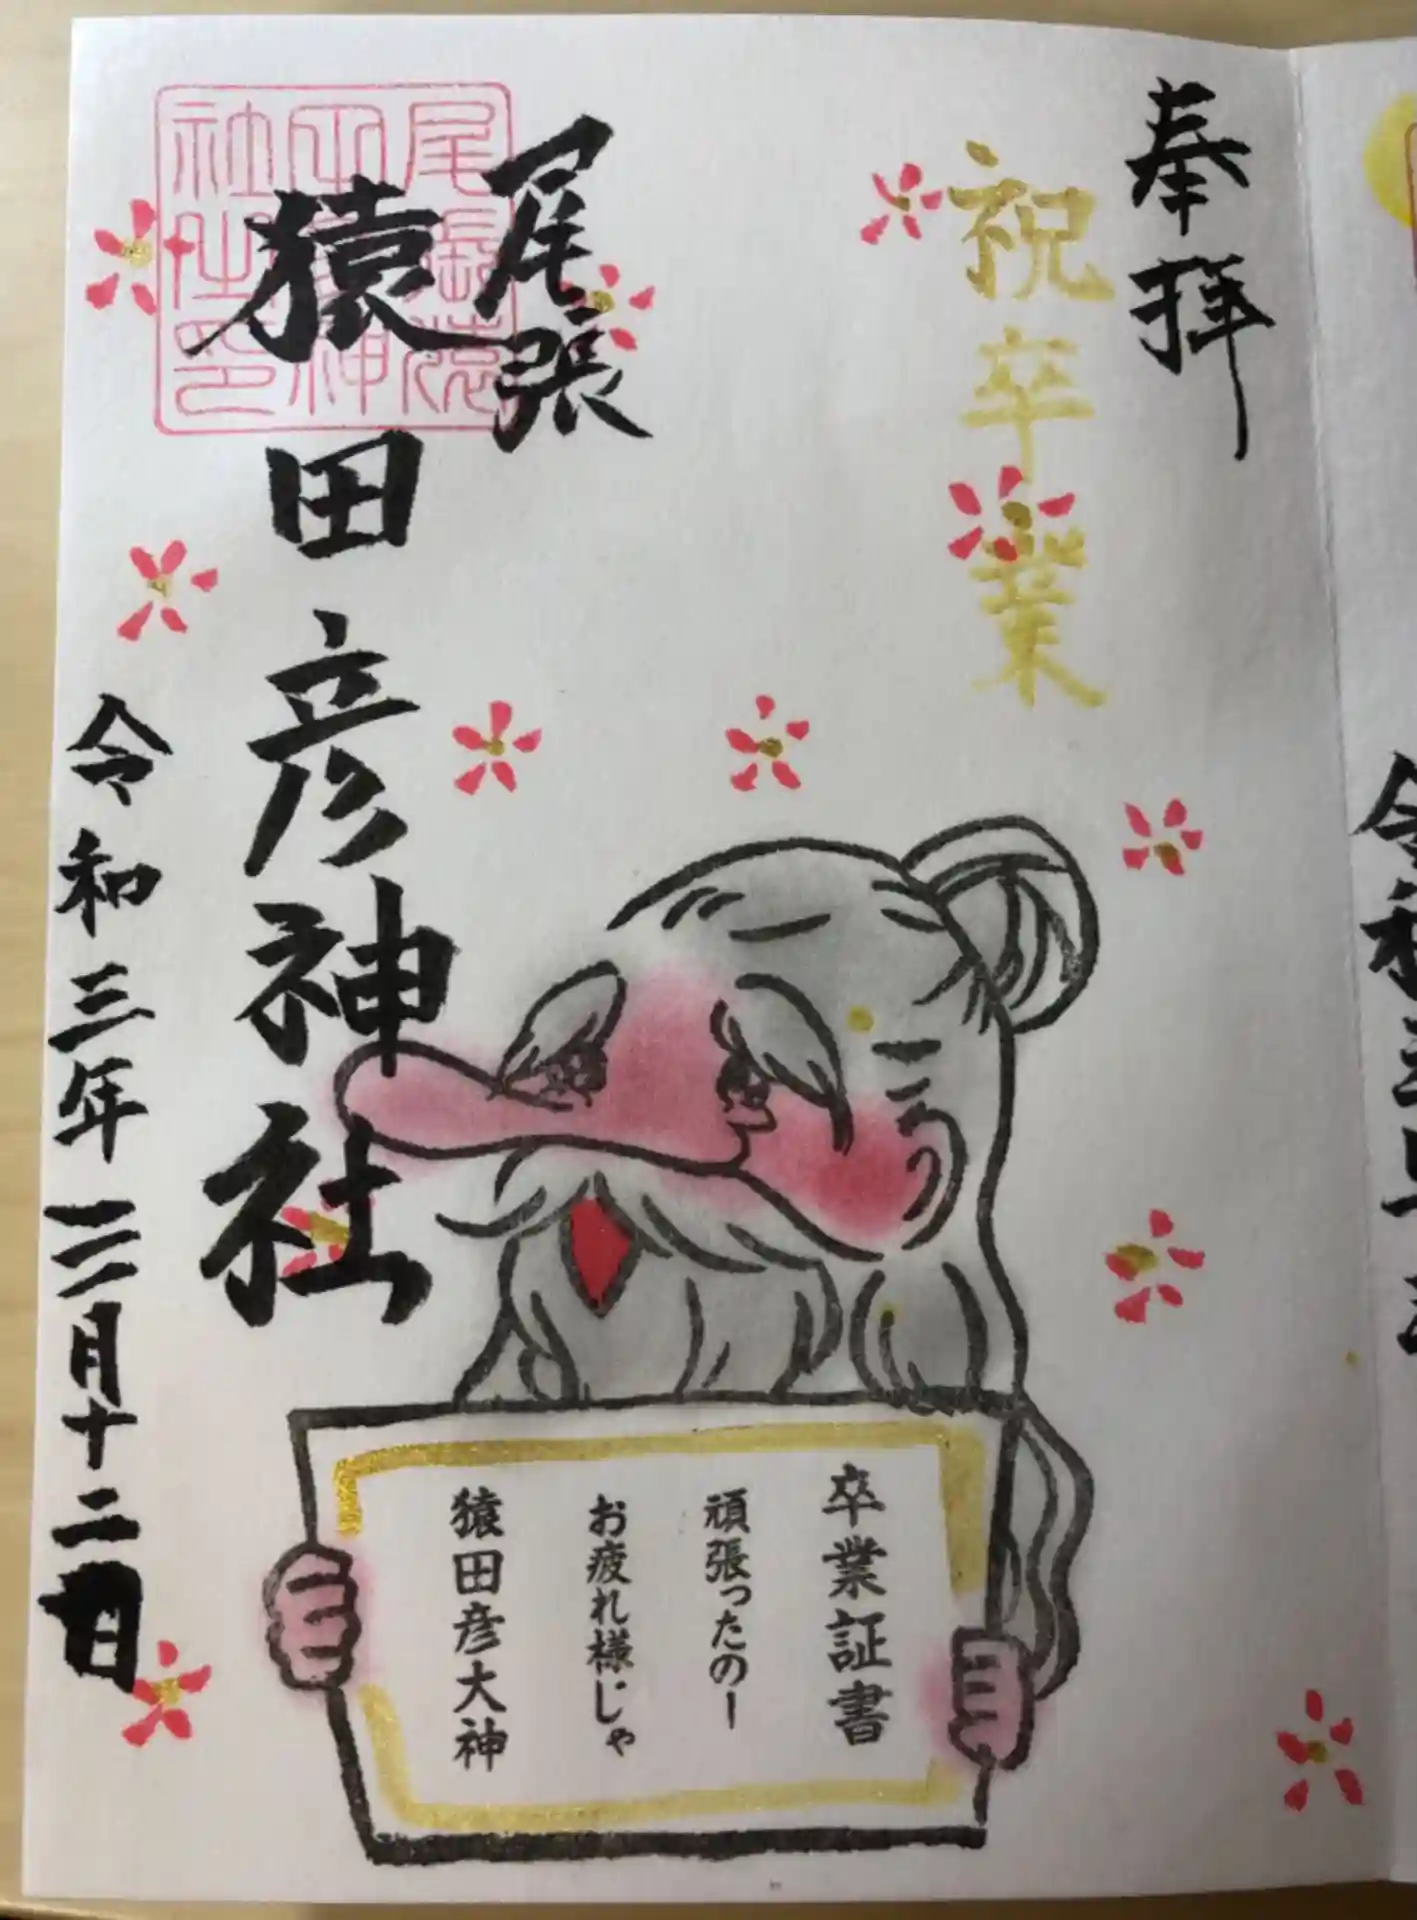 奉拝
祝卒業
尾張
猿田彦神社
令和三年三月十二日
卒業証書
頑張ったのー
お疲れ様じゃ
猿田彦大神